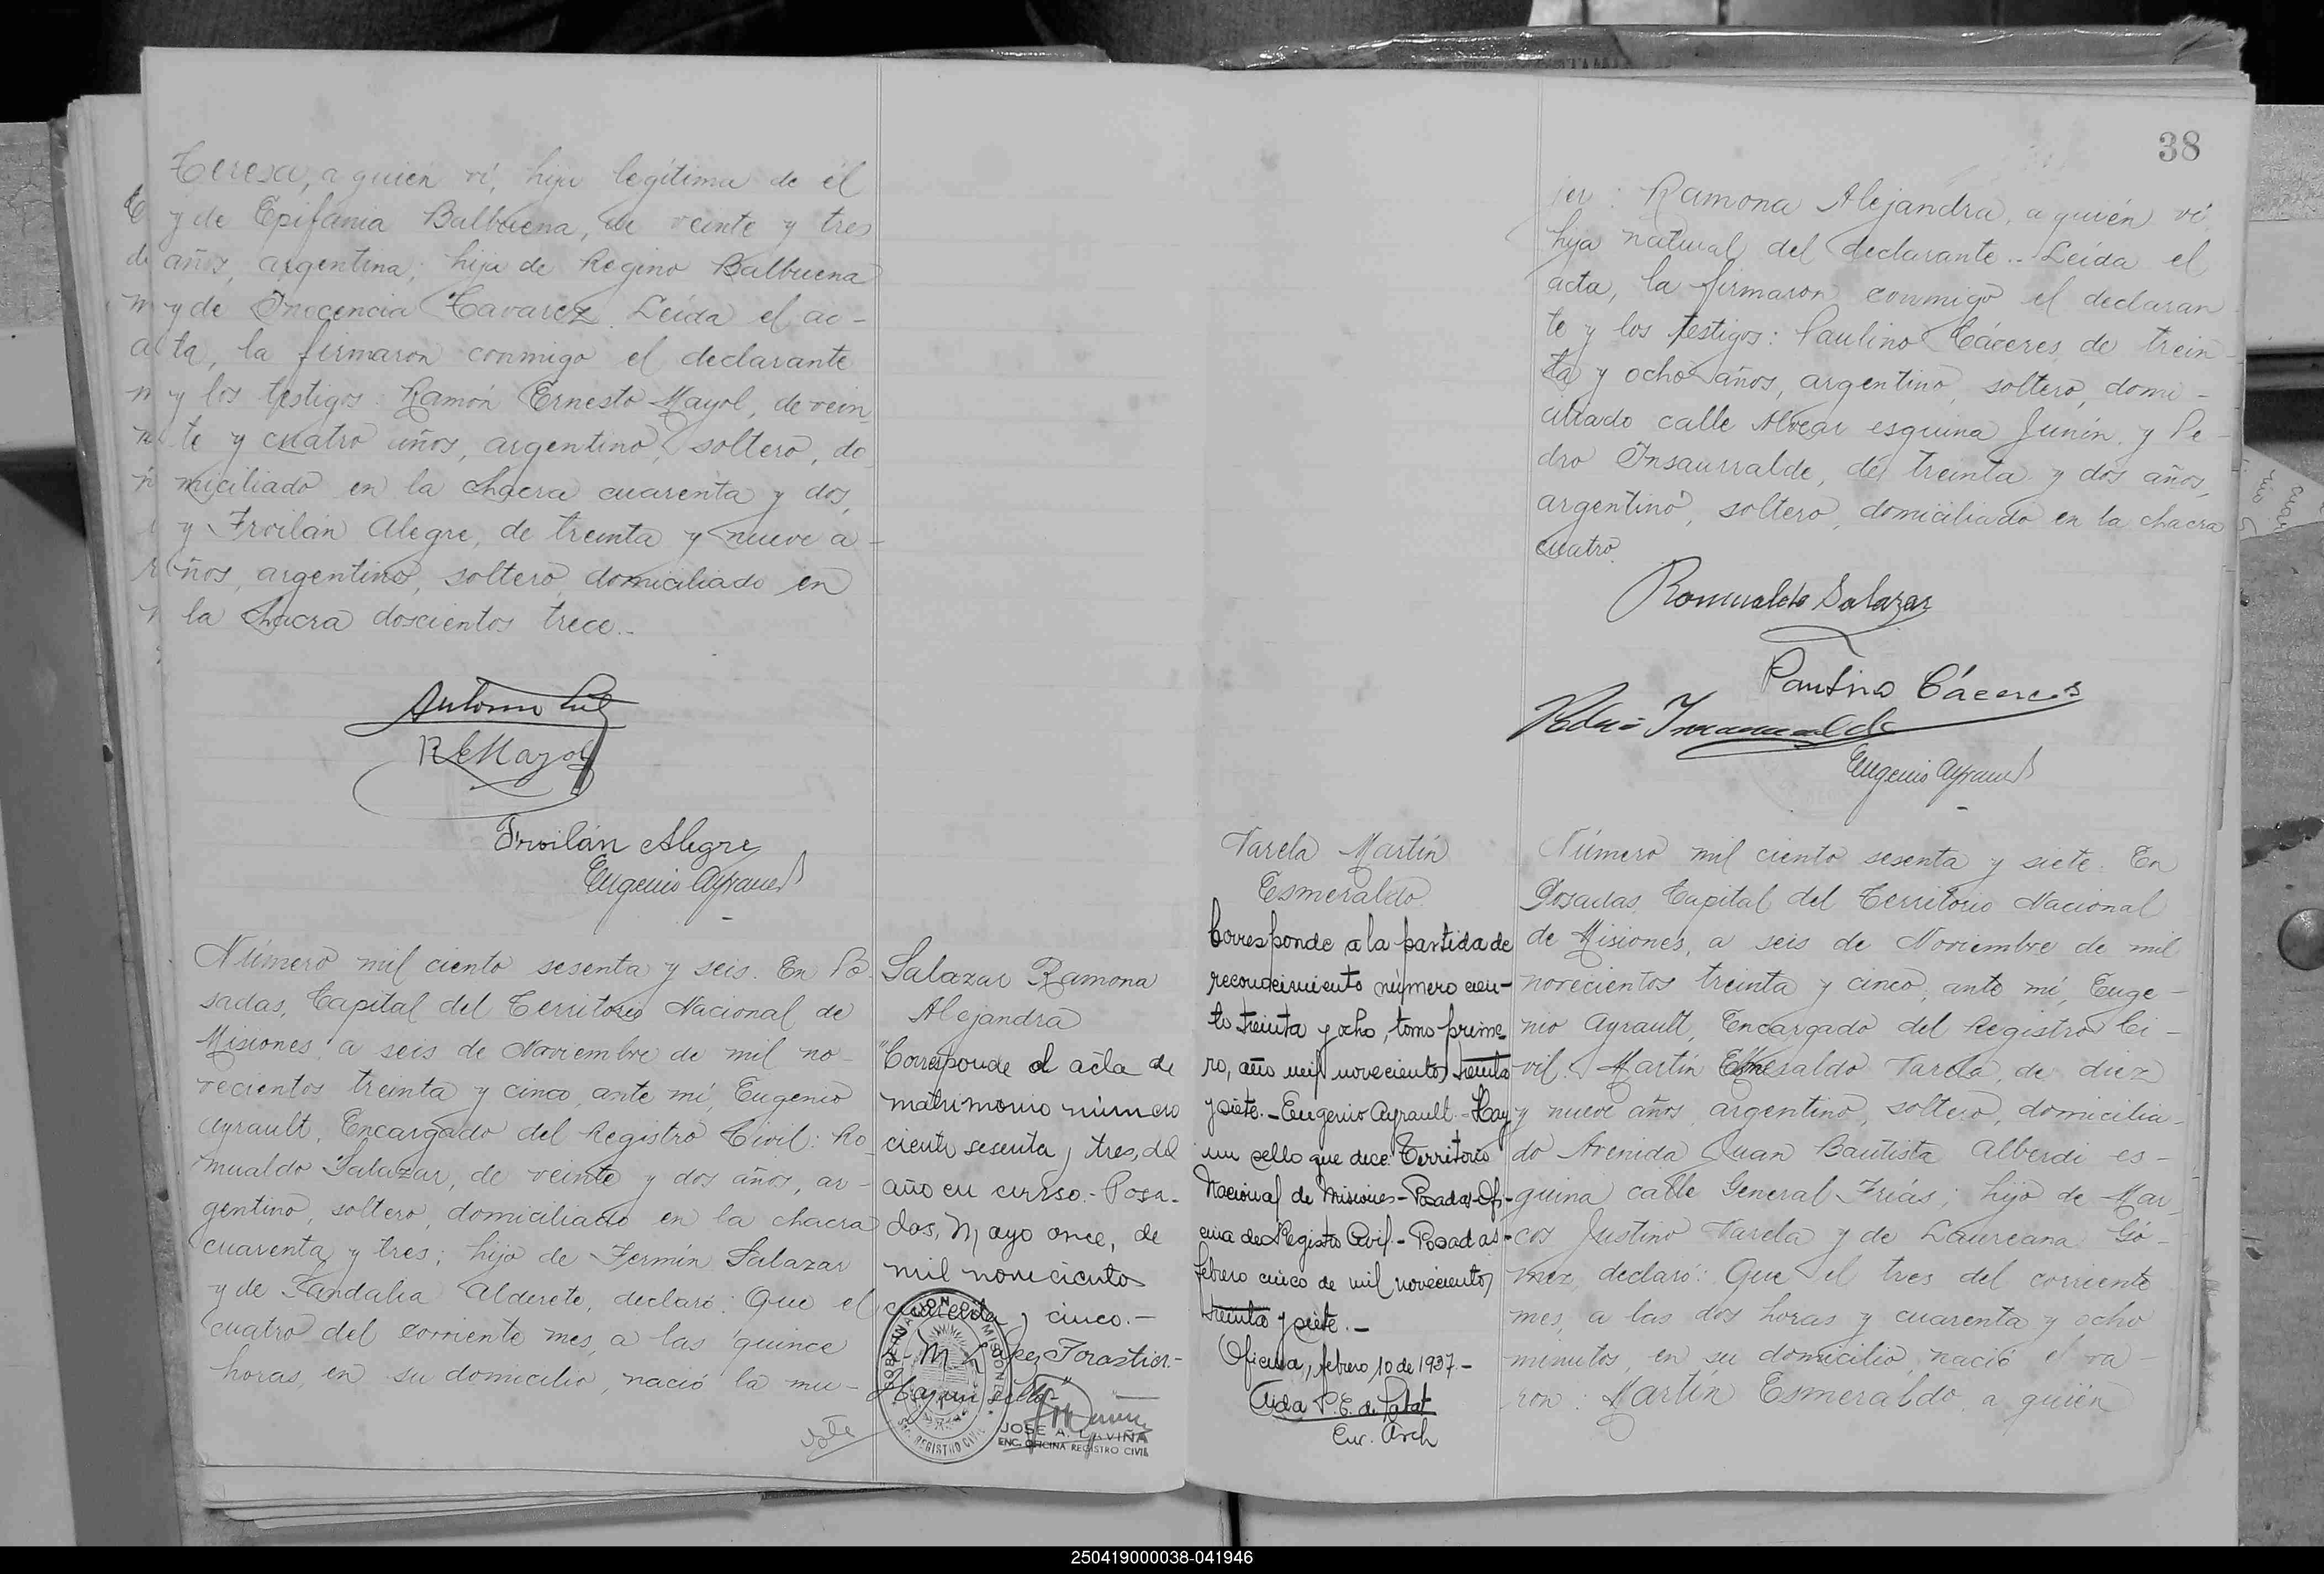 Teresa, a quién ví, hija legítima de él
y de Epifania Balbuena, de veinte y tres
años, argentina; hija de Regino Balbuena
y de Inocencia Tavarez. Leída el ac-
ta, la firmaron conmigo el declarante
y los testigos: Ramón Ernesto Mayol, de vein
te y cuatro años, argentino, soltero, do
miciliado en la chacra cuarenta y dos,
y Froilán Alegre, de treinta y nueve a-
ños, argentino, soltero, domiciliado en
la chacra doscientos trece.-
Antonio
R E Mayol
Froilán Alegre
Eugenio Ayrault
Número mil ciento sesenta y seis. En Po-
sadas, Capital del Territorio Nacional de
Misiones, a seis de Noviembre de mil no-
vecientos treinta y cinco, ante mí, Eugenio
Ayrault, Encargado del Registro Civil: Ro-
mualdo Salazar, de veinte y dos años, ar-
gentino, soltero, domiciliado en la chacra
cuarenta y tres; hijo de Fermín Salazar
y de Sandalia Alderete, declaró: Que el
cuatro del corriente mes, a las quince
horas, en su domicilio, nació la mu-
Salazar Ramona
Alejandra
"Corresponde al acta de
matrimonio número
ciento sesenta y tres, del
año en curso.- Posa-
das, Mayo once, de
mil novecientos
cuarenta y cinco.-
M López Forastier.-
Hay un sello-"
GOBERNACION MISIONES
REGISTRO CIVIL
JOSE A. LAVIÑA
ENC. OFICINA REGISTRO CIVIL
38
jer: Ramona Alejandra, a quién ví
hija natural del declarante.- Leída el
acta, la firmaron conmigo el declaran
te y los testigos: Paulino Cáceres, de trein-
ta y ocho años, argentino, soltero, domi-
ciliado calle Alvear esquina Junín, y Pe-
dro Insaurralde, de treinta y dos años,
argentino, soltero, domiciliado en la chacra
cuatro.
Romualdo Salazar
Paulino Cáceres
Pedro Insaurralde
Eugenio Ayrault
Varela Martín
Esmeraldo
Corresponde a la partida de
reconocimiento número cien-
to treinta y ocho, tomo prime-
ro, año mil novecientos treinta
y siete.- Eugenio Ayrault.- Hay
un sello que dice: Territorio
Nacional de Misiones- Posadas- Ofi-
cina de Registro Civil.- Posadas-
febrero cinco de mil novecientos
treinta y siete.-
Oficina, febrero 10 de 1937.-
Aida P. E. de
Enc. Arch
Número mil ciento sesenta y siete. En
Posadas, Capital del Territorio Nacional
de Misiones, a seis de Noviembre de mil
novecientos treinta y cinco, ante mí, Euge-
nio Ayrault, Encargado del Registro Ci-
vil: Martín Esmeraldo Varela, de diez
y nueve años, argentino, soltero, domicilia-
do Avenida Juan Bautista Alberdi es-
quina calle General Frías; hijo de Mar
cos Justino Varela y de Laureana Gó-
mez, declaró: Que el tres del corriente
mes, a las dos horas y cuarenta y ocho
minutos, en su domicilio, nació el va-
ron: Martín Esmeraldo, a quién
250419000038-041946